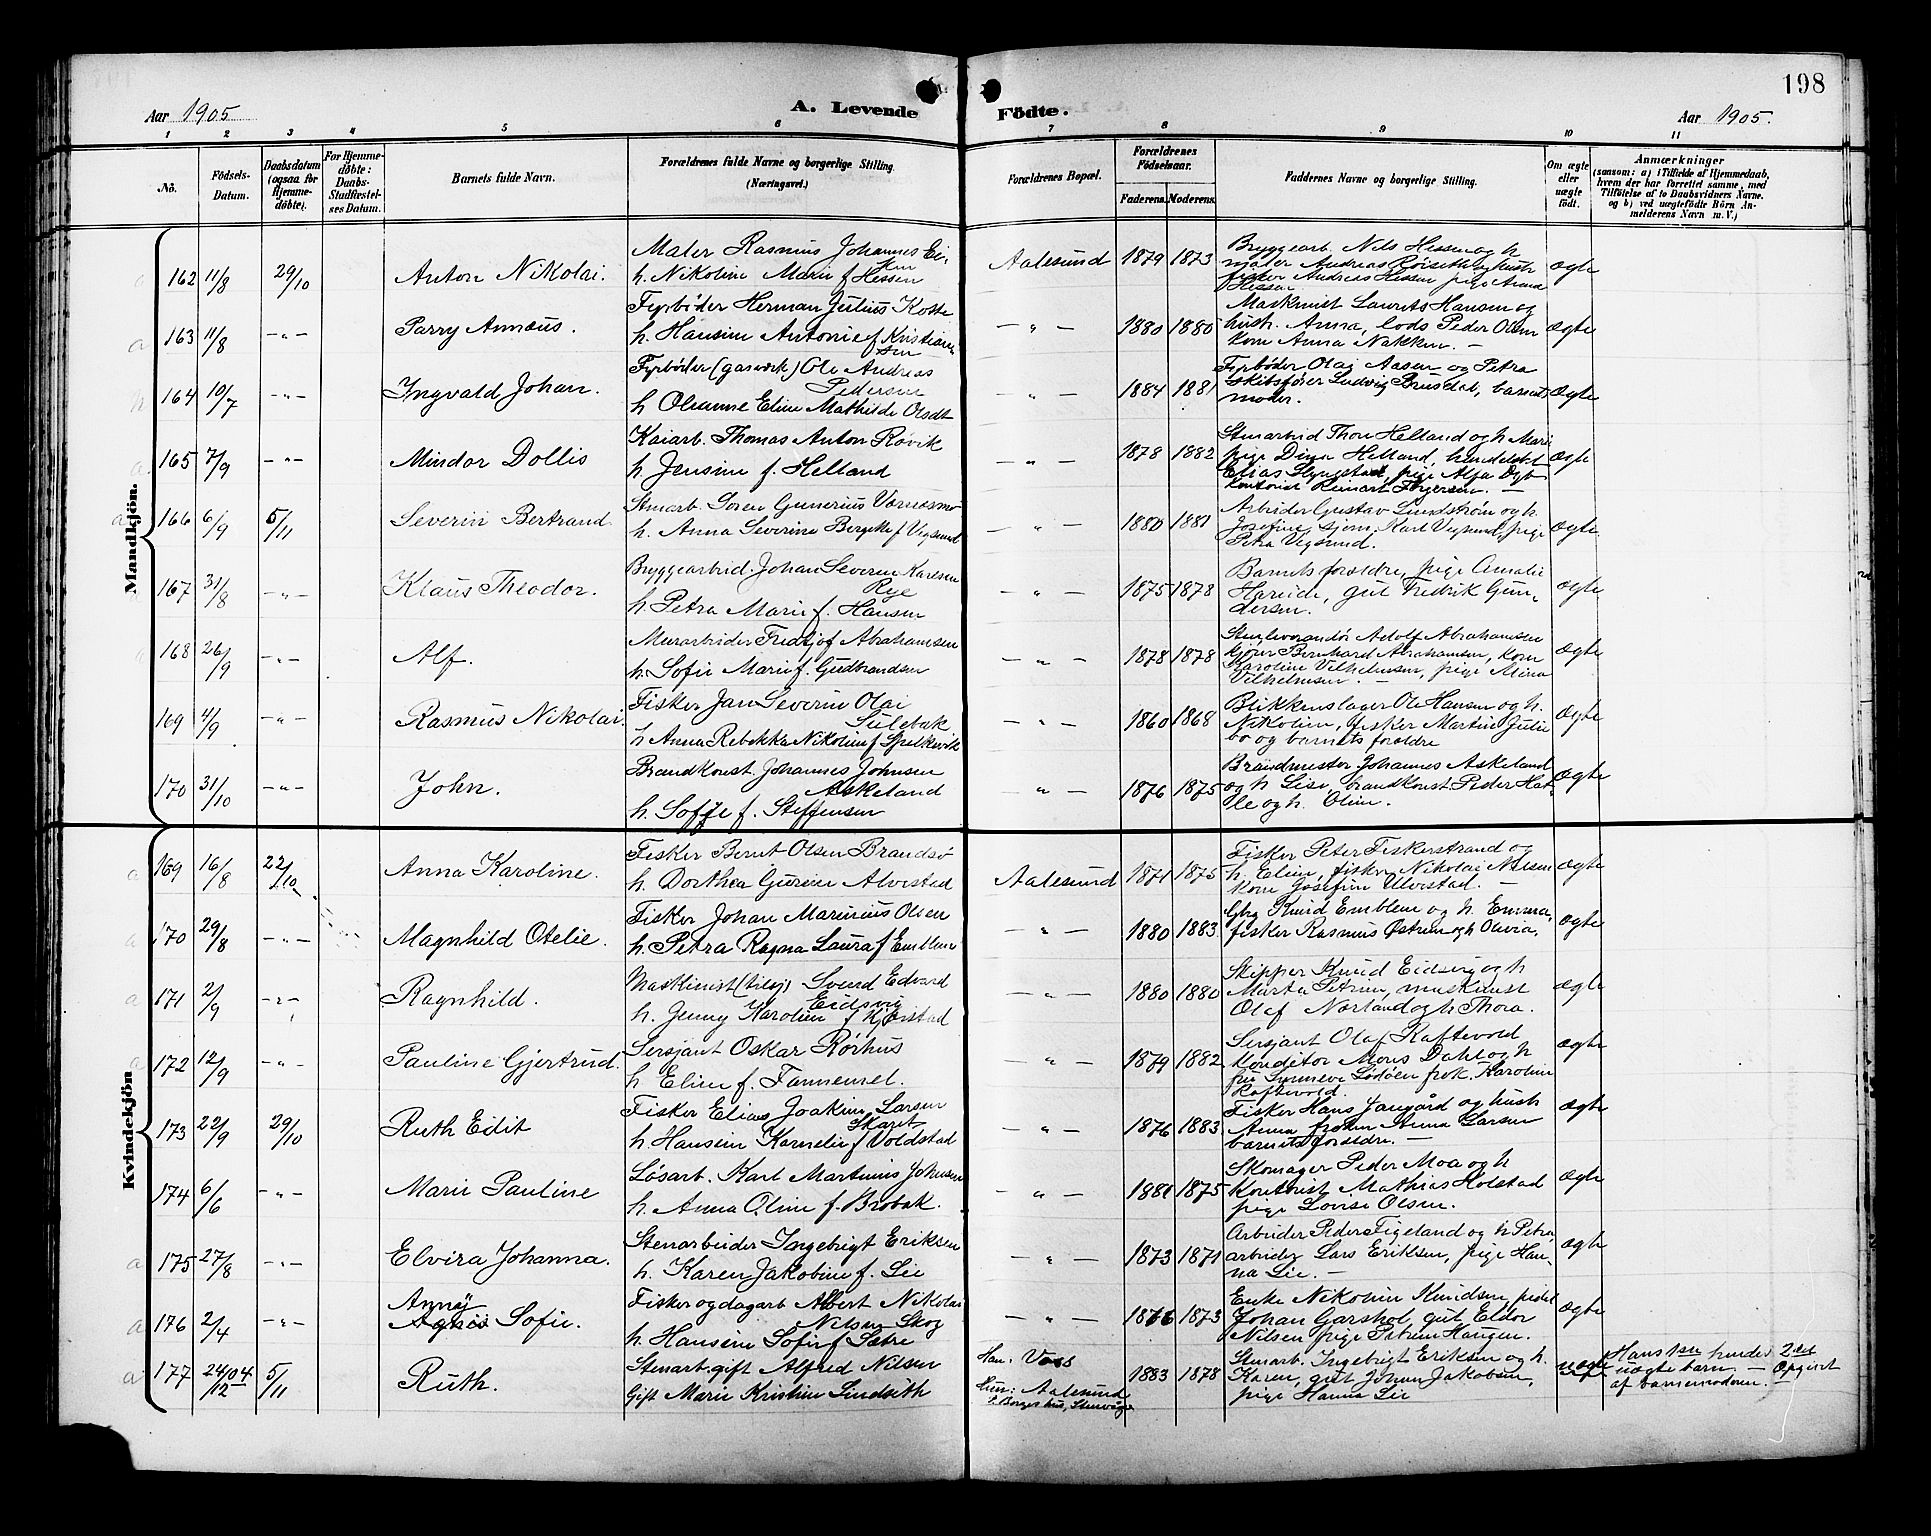 198
Aar 1905
A. Levende
Födte.
Aar 1905.
1 2 3 4 5 6 7 8 9 10 11
No.
Födsels-
Datum.
Daabsdatum
(ogsaa for
Hjemme-
döbte).
For Hjemme-
döbte:
Daabs-
Stadfæstel-
ses Datum.
Barnets fulde Navn.
Forældrenes fulde Navne og borgerlige Stilling
(Næringsvei.)
Forældrenes Bopæl.
Forældrenes
Födselsaar.
Faderens. Moderens.
Faddernes Navne og borgerlige Stilling.
Om ægte
eller
uægte
födt.
Anmærkninger
(saasom: a) i Tilfælde af Hjemmedaab,
hvem der har forrettet samme, med
Tilföielse af to Daabsvidners Navne.
og b) ved uægtefödte Börn An-
melderens Navn m. V.)
Mandkjön.
162 11/8 29/10 Anton Nikolai.
Maler Rasmus Johannes
h. Nikoline Marie f. Hessen
Aalesund 1879 1873
Bryggearb. Nils Hessen og h
maler Andreas Röiseth og hust
fisker Andreas Hessen pige
Hessen
ægte
163 11/8 -"- Parry Annæus.
Fyrbøder Herman Julius Kosse
h. Hansine Antonie f. Kristian
sen
-"- 1880 1880
Maskinist Laurits Hansen og
hustr. Anna, lods Peder Olsen
kone Anna Nakken. -
ægte
164 10/7 -"- Ingvald Johan.
Fyrbøder (gasverk) Ole Andreas
Pedersen
h Oleanne Eline Mathilde Olsdt
-"- 1884 1881
Fyrbøder Olai Aasen og Petra
skibsfører Ludvig Brusdal, barnets
moder.
ægte
165 7/9 -"- Mindor Dollis
Kaiarb. Thomas Anton Røvik
h. Jensine f. Helland
-"- 1878 1882
Stenarbeid Thore Helland og h Mari
pige Dina Helland, handelsbet
Elias Slyngstad, pige Alfa Dyb
kontorist Torgersen. -
ægte
166 6/9 5/11 Severin Bertrand.
Stenarb. Søren Gunerius
h. Anna Severine f. Vegsund
-"- 1880 1881
Arbeider Gustav Lundstrøm og h.
Josefine, sjøm. Karl Vegsund, pige
Petra Vegsund.
ægte
167 31/8 -"- Klaus Theodor.
Bryggearbeid. Johan Severin Karlsen
Rye
h. Petra Marie f. Hansen
-"- 1875 1878
Barnets forældre, pige Amalie
Hareide, gut Fredrik Gun-
dersen.
ægte
168 26/9 -"- Alf.
Murarbeider Fredtjof Abrahamsen
h. Sofie Marie f. Gudbrandsen
-"- 1878 1878
Stenleverandør Adolf Abrahamsen
kjører Bernhard Abrahamsen, kone
Karoline Vilhelmsen, pige Mina
Vilhelmsen. -
ægte
169 4/9 -"- Rasmus Nikolai.
Fisker Jan Severin Olai
Sulebak
h Anna Rebekka Nikoline f Spelkevik
-"- 1860 1868
Blikkenslager Ole Hansen og h.
Nikoline, fisker Martin Julie
bo og barnets forældre
ægte
170 31/10 -"- John.
Brandkonst. Johannes Johnsen
Askeland
h. Soffie f. Steffensen
-"- 1876 1875
Brandmester Johannes Askeland
og h Lise, brandkonst Peder Hat-
le og h. Oline.
ægte
Kvindekjön
169 16/8 22/10 Anna Karoline.
Fisker Bernt Olsen Brandsø
h. Dorthea Gurine Alvestad
Aalesund 1871 1875
Fisker Peter Fiskerstrand og
h. Eline, fisker Nikolai Nilsen
kone Josefine Ulvestad. -
ægte
170 29/8 -"- Magnhild Otelie.
Fisker Johan Marinius Olsen
h. Petra Ragna Laura f Emblem
-"- 1880 1883
Gbr Knud Emblem og h. Emma,
fisker Rasmus Østrem og h Olivia,
ægte
171 2/9 -"- Ragnhild.
Maskinist (tilsj) Svend Edvard
Eidsvig
h. Jenny Karoline f.
-"- 1880 1880
Skipper Knud Eidsvig og h
Marta Petrine, maskinist
Olaf Norland og h Thora.
ægte
172 12/9 -"- Pauline Gjertrud.
Sersjant Oskar Rørhus
h Eline f. Fannemel.
-"- 1879 1882
Sersjant Olaf Raftevold
konditor Mons Dahl og h
fru Synneve Lødøen frøk. Karoline
Raftevold.
ægte
173 22/9 29/10 Ruth Edit
Fisker Elias Joakim Larsen
Skart
h. Hansine Kornelie f Voldstad
-"- 1876 1883
Fisker Hans Jangård og hustr
Anna frøken Anna Larsen
barnets forældre. -
ægte
174 6/6 -"- Marie Pauline
Løsarb. Karl Martinus Johnsen
h. Anna Oline f. Brobak.
-"- 1881 1875
Skomager Peder Moa og h
kontorist Mathias Holstad
pige Lovise Olsen.
ægte
175 27/8 -"- Elvira Johanna.
Stenarbeider Ingebrigt Eriksen
h. Karen Jakobine f. Lie
-"- 1873 1871
Arbeider Peder Figeland og h Petra,
arbeider Lars Eriksen, pige Han-
na Lie. -
ægte
176 2/4 -"- Anny
Agnes Sofie.
Fisker og dagarb Albert Nikolai
Nilsen Skog
h. Hansine Sofie f Sætre
-"- 1876 1873
Enke Nikoline Knudsen,
Johan Garshol, gut Eldor
Nilsen pige Petrine Haugen.
ægte
177 24/12 04 5/11 Ruth.
Stenarb. gift Alfred Nilsen
Gift Marie Kristine Lindseth
Han: Voss
Hun: Aalesund
Borges hus, Stenvåge
1883 1878
Stenarb. Ingebrigt Eriksen og h.
Karen, gut Johan Jakobsen,
pige Hanna Lie
uægte
Hans 1ste hendes 2det
uægte barn. - Opgivet
af barnemoderen. -